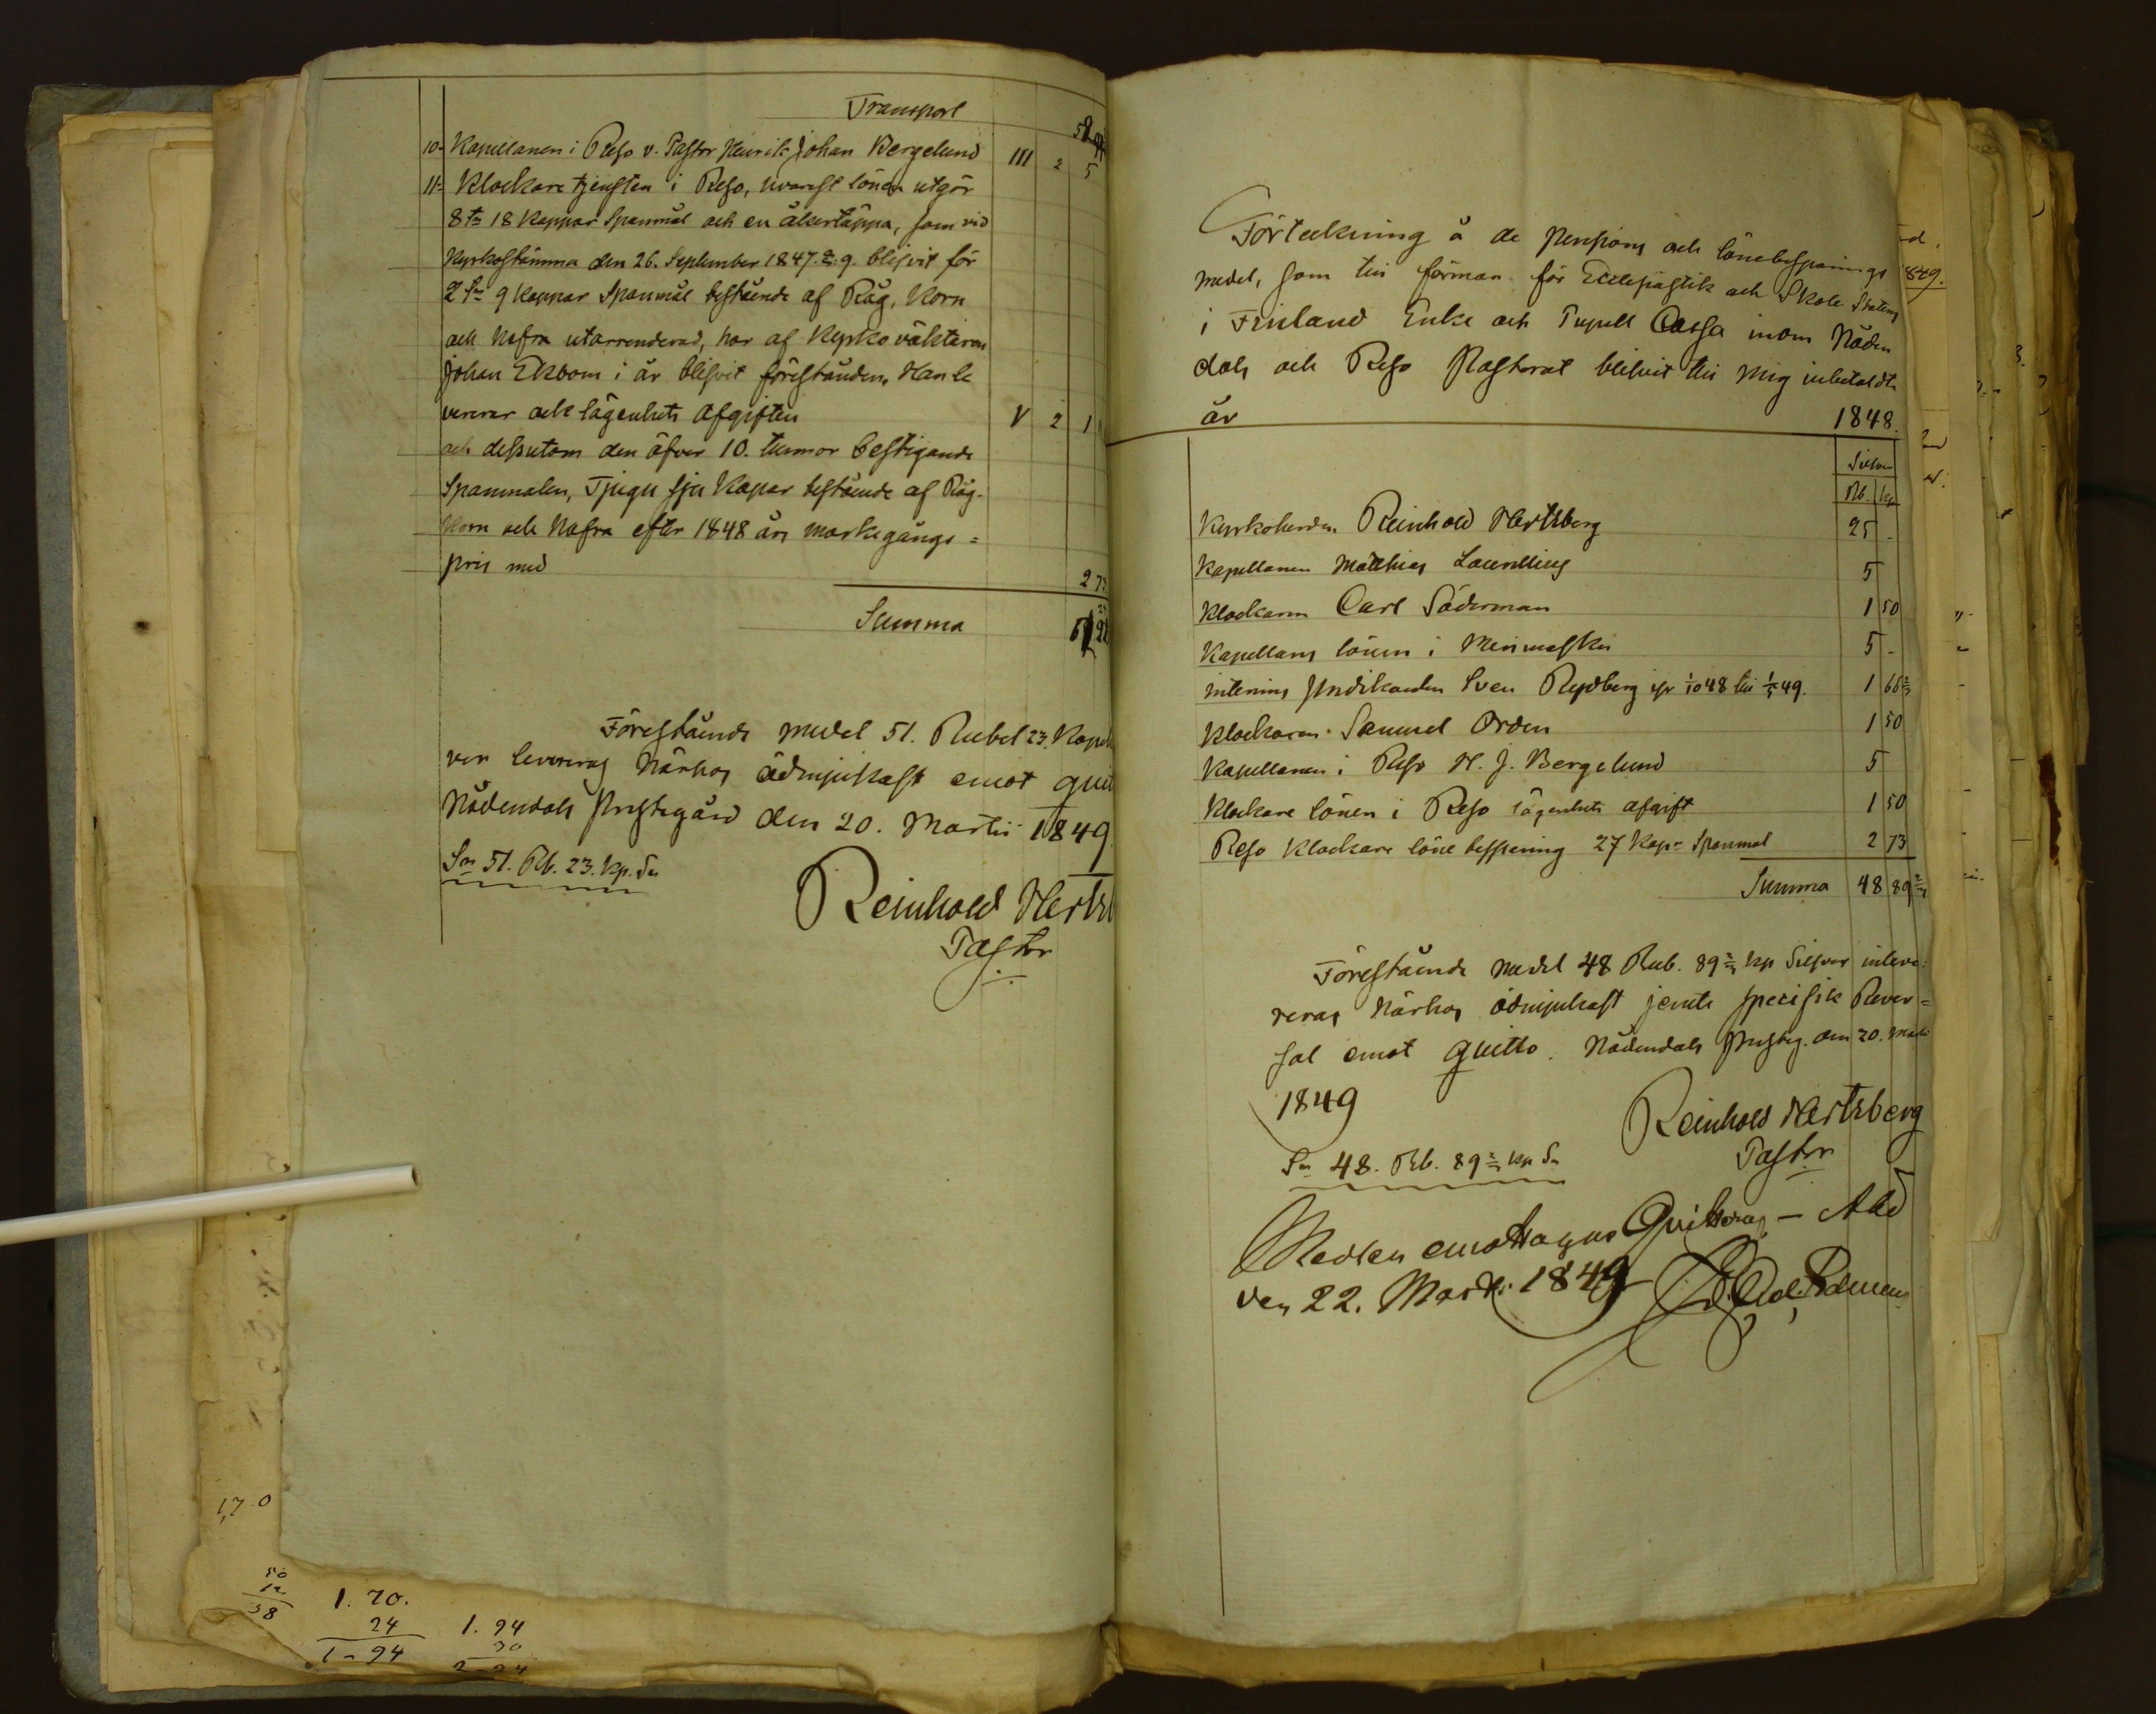 Transport
10. Kapellanen i Reso v. Pastor Henrik Johan Bergelund III 2 5
11. Klockare tjensten i Reso, hvarest lönen utgör
8 t:r 18 Kappar Spanmål och en åkertäppa, som vid
Kyrkostämma den 26. September 1847. § 9. blifvit för
2 t:r 9 Kappar Spanmål bestående af Råg, Korn
och Hafra utarrenderad, har af Kyrkoväktaren
Johan Ekbom i år blifvit förestånden. Han le
vererar och lägenhets afgiften V 2 1
och dessutom den öfver 10. tunnor bestigande
Spanmalen, Tjugu sju Kapar bestående af Råg-
Korn och Hafra efter 1848 års markegångs=
pris med 2 73
Summa
Förestående medel 51. Rubel 23. Kope
ver levereras Närhos ödmjukast emot qui
Nådendals Prestegård den 20. Martii 1849
S:a 51. Rb. 23. kp. S:r
Reinhold Hertzb
Pastor
Förteckning å de Pensions och lönebesparings
medel, som till förmån för Ecclesiastik och Skole Statens
i Finland Enke och Pupill Cassa inom Nåden
dals och Reso Pastorat blifvit till mig inbetaldte
år 1848.
Silfver
Rb. kp
Kyrkoherden Reinhold Hertzberg 25 -
Kapellanen Matthias Laurellius 5
Klockaren Carl Söderman 1 50
Kapellans lönen i Merimasku 5 -
interims Predikanten Sven Rydberg ifr 1/10 48 till 1/5 49. 1 66 2/3
Klockaren Samuel Orden 1 50
Kapellanen i Reso H. J. Bergelund 5
Klockare lönen i Reso lägenhets afgift 1 50
Reso Klockare löne besparing 27 Kap:r Spanmal 2 73
Summa 48 89 2/3
Förestående medel 48 Rub. 89 2/3 kp Silfver inleve=
reras Närhos ödmjukast jemte specifik Rever=
sal emot quitto. Nådendals Prestg. den 20. Marti
1849
Reinhold Hertzberg
Pastor
S:a 48. Rb. 89 2/3 kp S:r
Medlen emottagne Qvitteras - Åbo
den 22. Martii 1849
17.0
50
12
38
1. 70.
24
1 - 94
1. 94
30
2 - 24